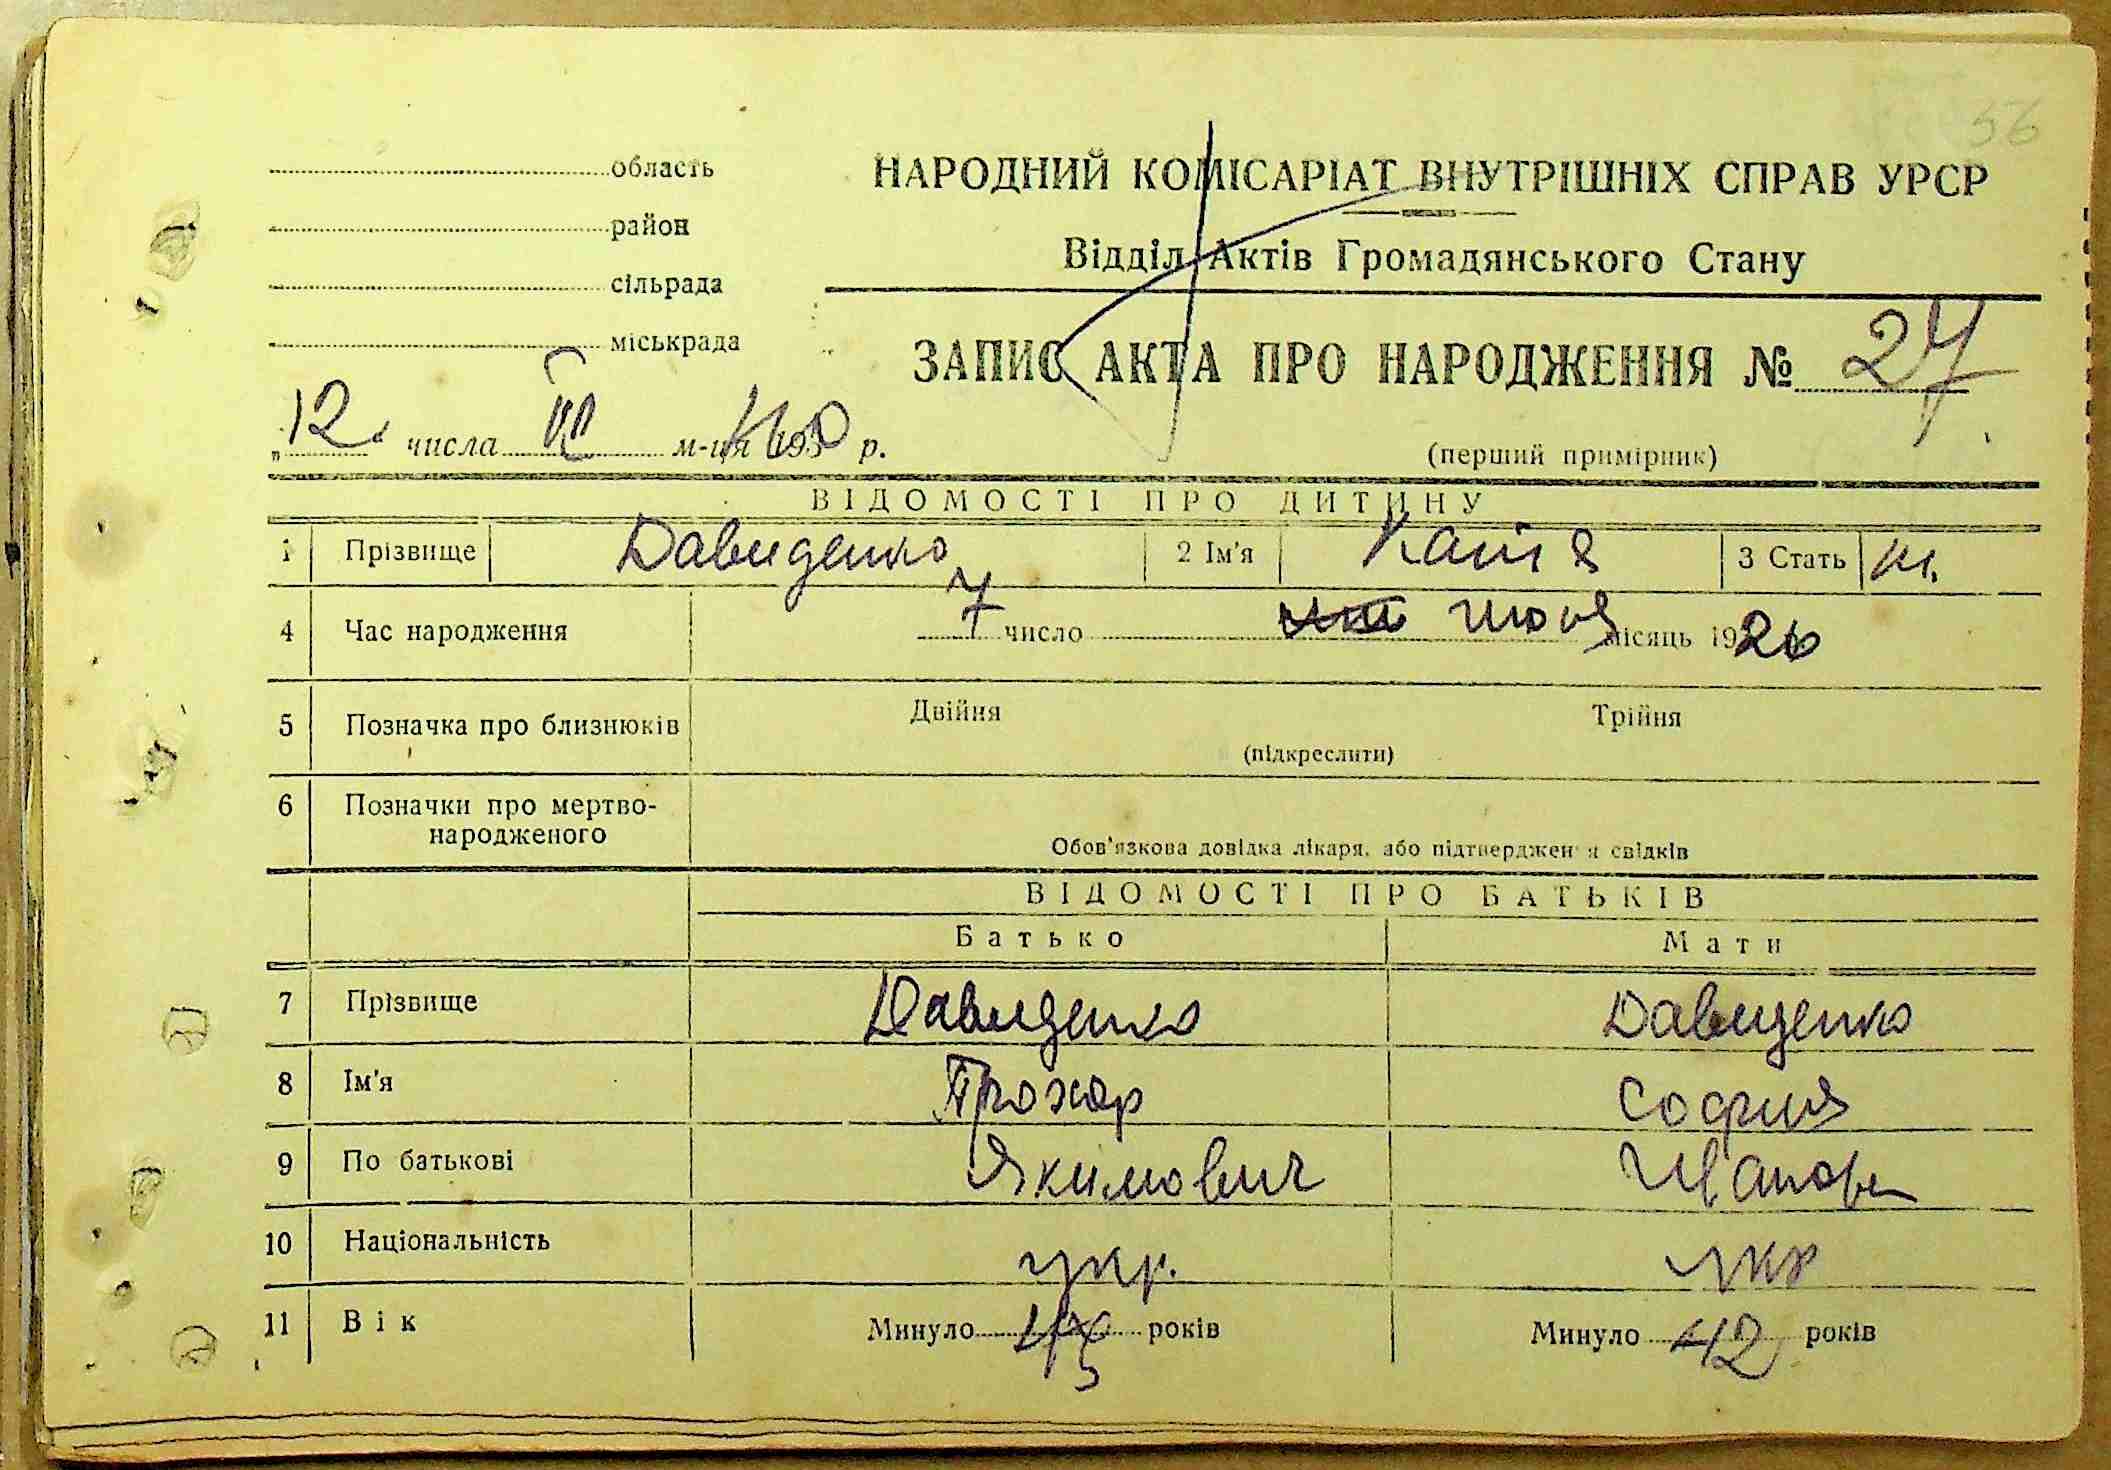 56
область
район
сільрада
міськрада
НАРОДНИЙ КОМІСАРІАТ ВНУТРІШНІХ СПРАВ УРСР
Відділ Актів Громадянського Стану
ЗАПИС АКТА ПРО НАРОДЖЕННЯ № 27
(перший примірник)
"12" числа м-ця р.
ВІДОМОСТІ ПРО ДИТИНУ
1 Прізвище Давиденко 2 Ім'я Катя 3 Стать
4 Час народження 7 число июля місяць 1926
5 Позначка про близнюків Двійня Трійня
(підкреслити)
6 Позначки про мертво-
народженого
Обов'язкова довідка лікаря, або підтвердження свідків
ВІДОМОСТІ ПРО БАТЬКІВ
Батько Мати
7 Прізвище Давиденко Давиденко
8 Ім'я Прохор София
9 По батькові Якимович
10 Національність укр. укр
11 Вік Минуло років Минуло 42 років